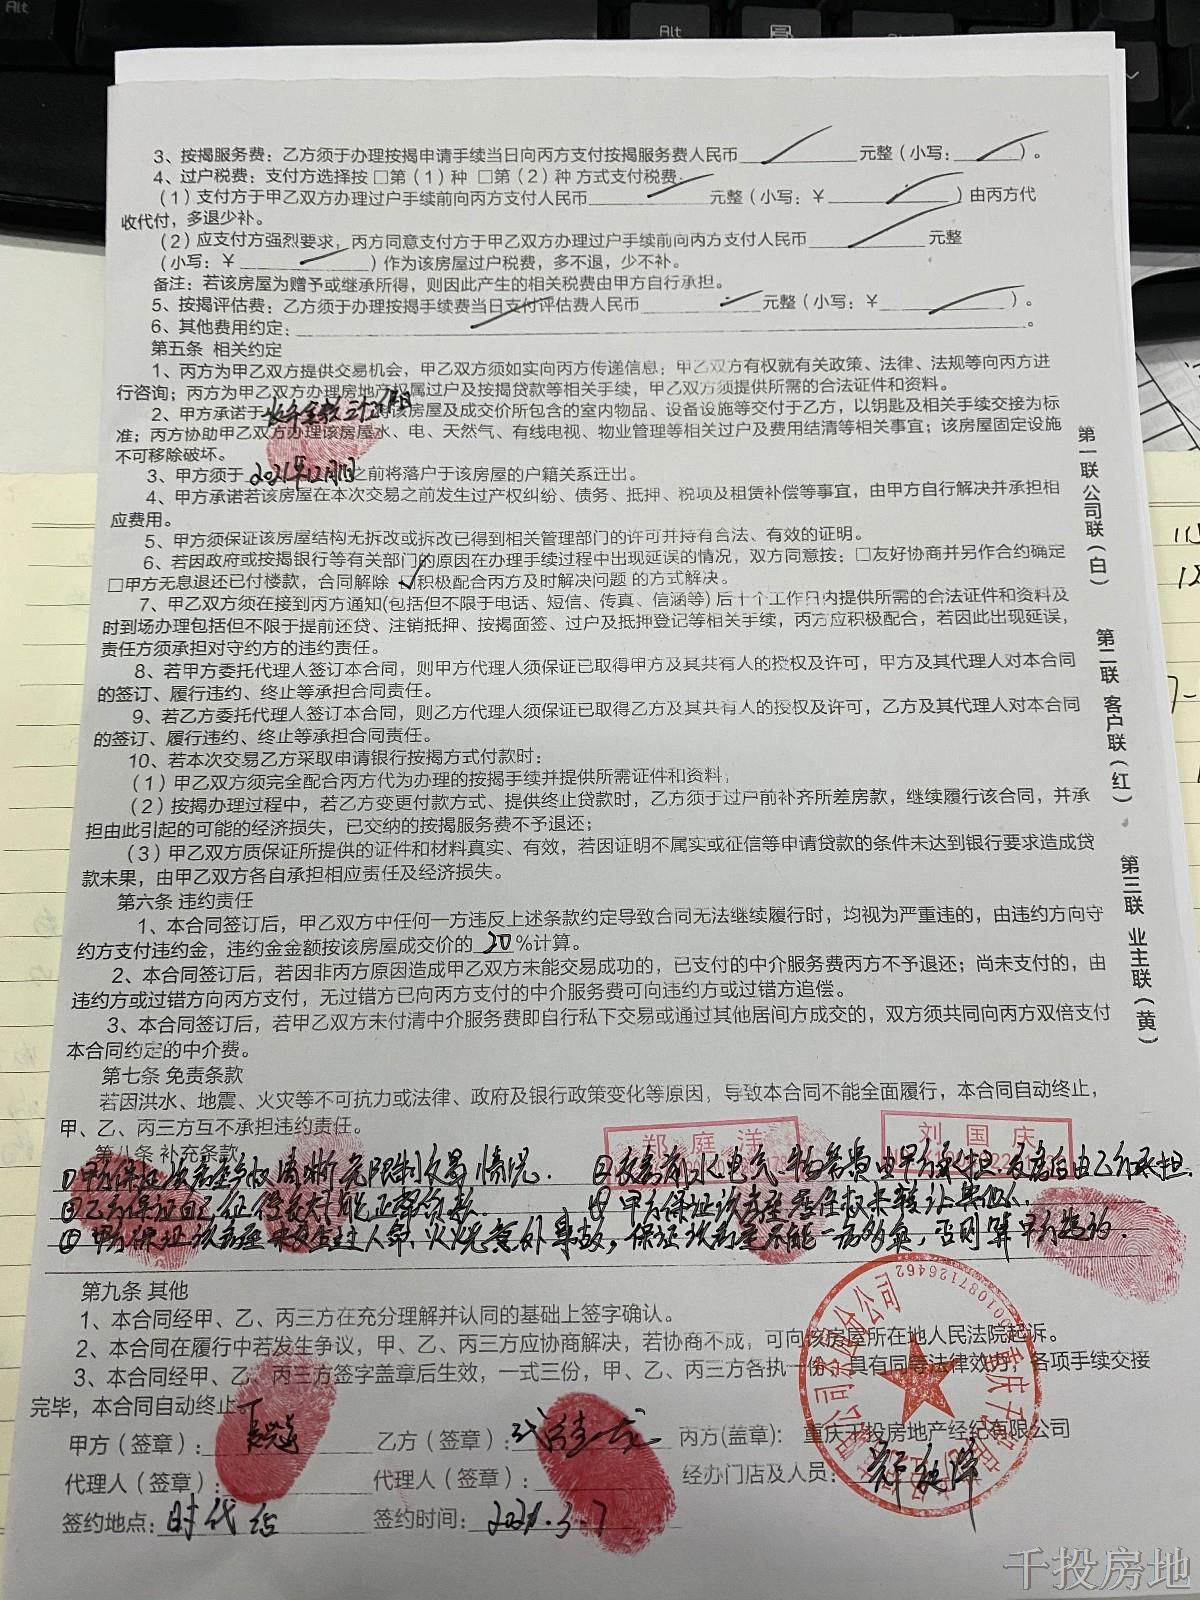 3、按揭服务费：乙方须于办理按揭申请手续当日向丙方支付按揭服务费人民币 元整（小写： ）。
4、过户税费：支付方选择按 □第（1）种 □第（2）种 方式支付税费.
（1）支付方于甲乙双方办理过户手续前向丙方支付人民币 元整（小写：￥ ）由丙方代
收代付，多退少补。
（2）应支付方强烈要求，丙方同意支付方于甲乙双方办理过户手续前向丙方支付人民币 元整
（小写：￥ ）作为该房屋过户税费，多不退，少不补。
备注：若该房屋为赠予或继承所得，则因此产生的相关税费由甲方自行承担。
5、按揭评估费：乙方须于办理按揭手续费当日支付评估费人民币 元整（小写：￥ ）。
6、其他费用约定： 。
第五条 相关约定
1、丙方为甲乙双方提供交易机会，甲乙双方须如实向丙方传递信息；甲乙双方有权就有关政策、法律、法规等向丙方进
行咨询；丙方为甲乙双方办理房地产权属过户及按揭贷款等相关手续，甲乙双方须提供所需的合法证件和资料。
2、甲方承诺于 该房屋及成交价所包含的室内物品、设备设施等交付于乙方，以钥匙及相关手续交接为标
准；丙方协助甲乙双方办理该房屋水、电、天然气、有线电视、物业管理等相关过户及费用结清等相关事宜；该房屋固定设施
不可移除破坏。
3、甲方须于 2021年12月1日之前将落户于该房屋的户籍关系迁出。
4、甲方承诺若该房屋在本次交易之前发生过产权纠纷、债务、抵押、税项及租赁补偿等事宜，由甲方自行解决并承担相
应费用。
5、甲方须保证该房屋结构无拆改或拆改已得到相关管理部门的许可并持有合法、有效的证明。
6、若因政府或按揭银行等有关部门的原因在办理手续过程中出现延误的情况，双方同意按：□友好协商并另作合约确定
□甲方无息退还已付楼款，合同解除 ☑积极配合丙方及时解决问题 的方式解决。
7、甲乙双方须在接到丙方通知(包括但不限于电话、短信、传真、信涵等)后十个工作日内提供所需的合法证件和资料及
时到场办理包括但不限于提前还贷、注销抵押、按揭面签、过户及抵押登记等相关手续，丙方应积极配合，若因此出现延误，
责任方须承担对守约方的违约责任。
8、若甲方委托代理人签订本合同，则甲方代理人须保证已取得甲方及其共有人的授权及许可，甲方及其代理人对本合同
的签订、履行违约、终止等承担合同责任。
9、若乙方委托代理人签订本合同，则乙方代理人须保证已取得乙方及其共有人的授权及许可，乙方及其代理人对本合同
的签订、履行违约、终止等承担合同责任。
10、若本次交易乙方采取申请银行按揭方式付款时：
（1）甲乙双方须完全配合丙方代为办理的按揭手续并提供所需证件和资料；
（2）按揭办理过程中，若乙方变更付款方式、提供终止贷款时，乙方须于过户前补齐所差房款，继续履行该合同，并承
担由此引起的可能的经济损失，已交纳的按揭服务费不予退还；
（3）甲乙双方质保证所提供的证件和材料真实、有效，若因证明不属实或征信等申请贷款的条件未达到银行要求造成贷
款未果，由甲乙双方各自承担相应责任及经济损失。
第六条 违约责任
1、本合同签订后，甲乙双方中任何一方违反上述条款约定导致合同无法继续履行时，均视为严重违的，由违约方向守
约方支付违约金，违约金金额按该房屋成交价的 20 %计算。
2、本合同签订后，若因非丙方原因造成甲乙双方未能交易成功的，已支付的中介服务费丙方不予退还；尚未支付的，由
违约方或过错方向丙方支付，无过错方已向丙方支付的中介服务费可向违约方或过错方追偿。
3、本合同签订后，若甲乙双方未付清中介服务费即自行私下交易或通过其他居间方成交的，双方须共同向丙方双倍支付
本合同约定的中介费。
第七条 免责条款
若因洪水、地震、火灾等不可抗力或法律、政府及银行政策变化等原因，导致本合同不能全面履行，本合同自动终止，
甲、乙、丙三方互不承担违约责任。
郑庭洋
刘国庆
第八条 补充条款
①甲方保证该房屋产权清晰无限制交易情况. ②交房前水电气、物管费由甲方承担.交房后由乙方承担.
③乙方保证自己征信良好能正常贷款. ④甲方保证该房屋居住权未转让其他人.
⑤甲方保证该房屋未发生过人命、火烧意外事故，保证该房屋不能一房多卖，否则算甲方违约.
第九条 其他
1、本合同经甲、乙、丙三方在充分理解并认同的基础上签字确认。
2、本合同在履行中若发生争议，甲、乙、丙三方应协商解决，若协商不成，可向该房屋所在地人民法院起诉。
3、本合同经甲、乙、丙三方签字盖章后生效，一式三份，甲、乙、丙三方各执一份，具有同等法律效力，各项手续交接
完毕，本合同自动终止。
甲方（签章）： 乙方（签章）： 丙方(盖章)： 重庆千投房地产经纪有限公司
代理人（签章）： 代理人（签章）： 经办门店及人员：
签约地点：时代店 签约时间：2021.3.7
第一联 公司联（白）
第二联 客户联（红）
第三联 业主联（黄）
千投房地